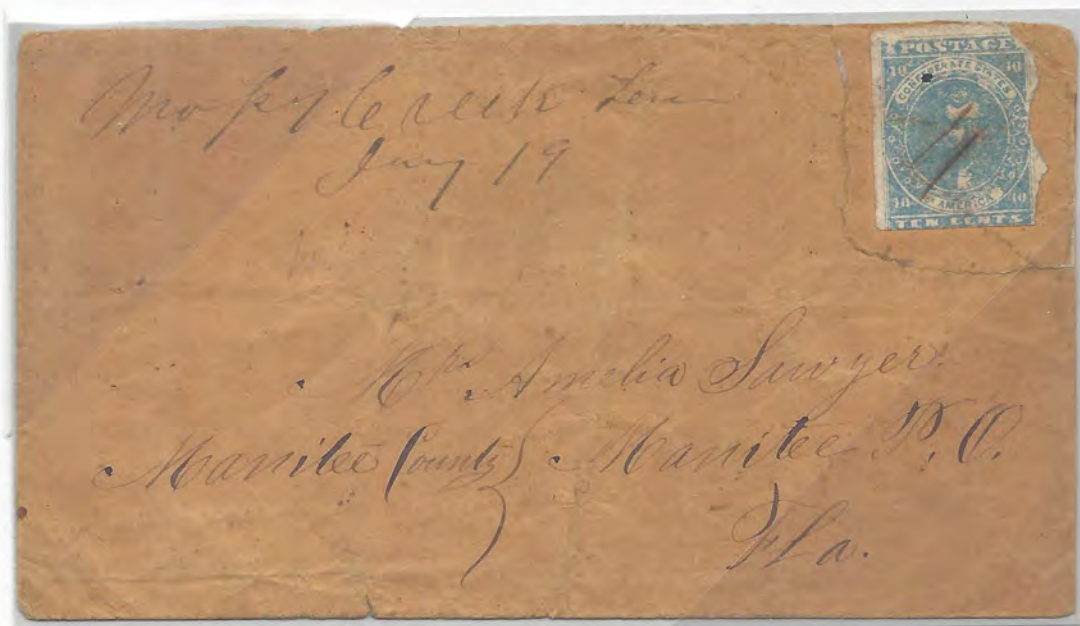 Mossy Creek Ten
Jany 19
POSTAGE
10 10
CONFEDERATE STATES
OF AMERICA
10 10
TEN CENTS
Mrs. Amelia Sawyer.
Manitee County) Manitee P.O.
Fla.